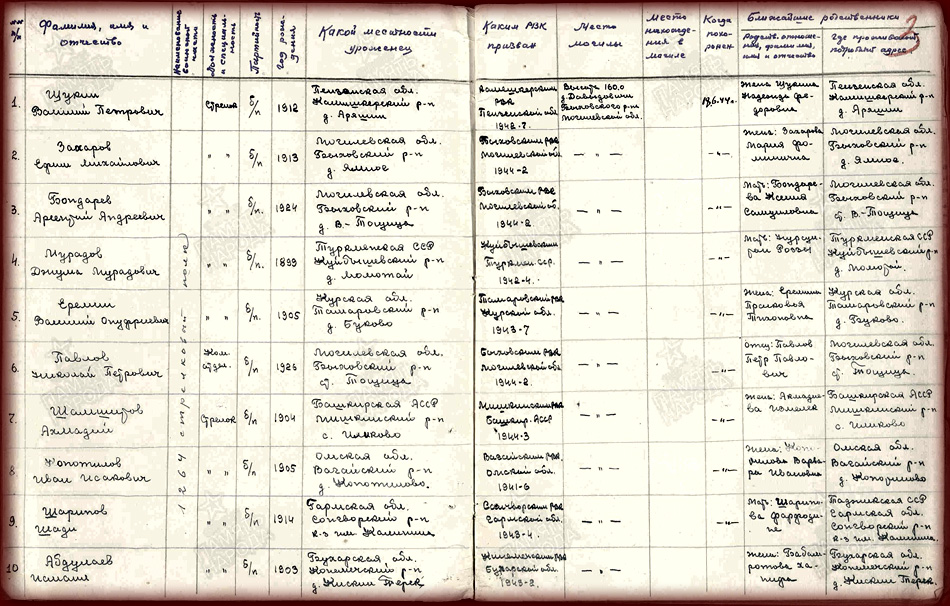 №№ п/п
Фамилия, имя и отчество
Наименование воинской части
Должность и специальность
Партийность
Год рождения
Какой местности уроженец
Каким РВК призван
Место могилы
Место нахождения в могиле
Когда похоронен
Ближайшие родственники
Родств. отношен., фамилия, имя и отчество
Где проживают, подробный адрес
3
1264 стрелковый полк
1. Щукин Василий Петрович
Стрелок б/п 1912
Пензенская обл.
Камешкирский р-н
д. Аряшии
Камешкирским РВК
Пензенской обл.
1942-7.
Высота 160,0
д. Давыдовичи
Быховского р-н
Могилевской обл.
18.6.44г.
Жена Щукина
Надежда Федоровна
Пензенская обл.
Камешкирский р-н
2. Захаров
Ефим Михайлович
" " б/п 1913
Могилевская обл.
Быховский р-н
д. Ямное
Быховским РВК
Могилевской обл.
1944-2
— " —
— " —
Жена: Захарова
Мария Фоминична
Могилевская обл.
Быховский р-н
д. Ямное
3. Бондарев
Арсентий Андреевич
" " б/п. 1924
Могилевская обл.
Быховский р-н
д. В.-Тощица
Быховским РВК
Могилевской об.
1944-2
— " —
— " —
Мать: Бондарева Ксения
Самуиловна
Могилевская обл.
Быховский р-н
ст. В.-Тощица
4. Мурадов
Джума Мурадович
" " б/п. 1899
Туркменская ССР
Куйбышевский р-н
д. Момотай
Куйбышевским
Туркмен. ССР.
1942-4.
— " —
Мать:
Туркменская ССР
Куйбышевский р-н
д. Момотай.
5. Еремин
Василий
" " б/п. 1905
Курская обл.
Томаровский р-н
д. Буково
Томаровский РВК
Курской обл.
1943-7
— " —
— " —
Жена: Еремина
Прасковья
Тихоновна
Курская обл.
Томаровский р-н
д. Буково.
6. Павлов
Николай Петрович
Ком. отдел. б/п 1926
Могилевская обл.
Быховский р-н
ст. Тощица
Быховским РВК
Могилевской обл.
1944-2.
— " —
— " —
Отец: Павлов
Петр Павлович
Могилевская обл.
Быховский р-н
ст. Тощица.
7. Шамшитов
Ахмадий
Стрелок б/п 1904
Башкирская АССР
Мишкинский р-н
с. Ишково
Мишкинским РВК
Башкир. АССР
1944-3
— " —
— " —
Жена:
Башкирская АССР
Мишкинский р-н
с. Ишково
8. Копотилов
Иван Исакович
" " б/п 1905
Омская обл.
Вагайский р-н
д. Копотилово.
Вагайским РВК
Омской обл.
1941-6
— " —
— " —
Жена: Копотилова Варвара Ивановна
Омская обл.
Вагайский р-н
д. Копотилово
9. Шарипов
Шади
" " б/п 1914
Гармская обл.
к-з им. Калинина.
Гармской обл.
1943-4.
— " —
— " —
Мать: Шарипова
Таджикская ССР
Гармская обл.
к-з им. Калинина.
10 Абдулаев
Исмаил
" " б/п. 1903
Бухарская обл.
Бухарской обл.
— " —
Жена:
Бухарская обл.